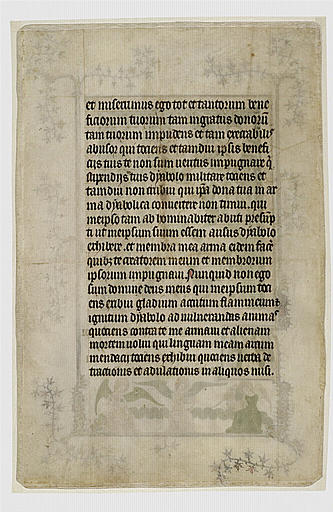 et miserrimus ego tot et tantorum bene
ficiorum tuorum tam ingratus donorū
tam tuorum impudens et tam execrabilis
abusor qui tociens et tamdiu ipsis benefi
ciis tuis te non sum veritus impugnare q̄
stipendijs tuis dyabolo militare tociens et
tamdiu non timui qui ip̄a dona tua in ar
ma dyabolica convertere non timui. qui
meipso tam abhominabiter abuti presūp
si ut meipsum suum essem ausus dyabolo
exhibere. et membra mea arma eidem facē
quibz te creatorem meum et membrorum
ipsorum impugnavi. Nunquid non ego
sum domine deus meus qui meipsum toci
ens exibui gladium acutum flammeum et
ignitum dyabolo ad vulnerandas animas
quociens contra te me armavi et alienam
mortem volui qui linguam meam arcum
mendacij tociens exhibui quociens verba de
tractionis et adulationis in aliquos misi.